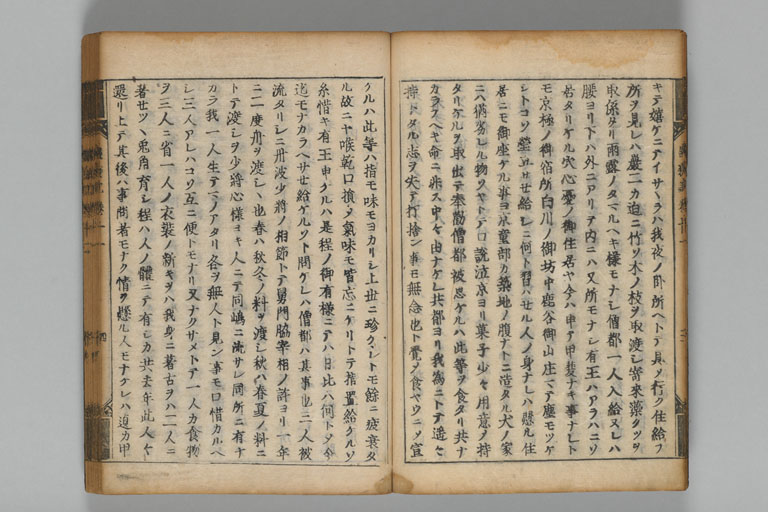 キテ嬉ケニテイサヽラハ我夜ノ臥所ヘトテ具メ行ク住給フ
所ヲ見レハ巌二カ迫ニ竹ツ木ノ枝ヲ取渡シ寄来藻クツヲ
取係タリ雨露ノタマルヘキ様モナシ僧都一人入給ヌレハ
腰ヨリ下ハ外ニアリテ内ニハ又所モナシ有王ハアラハニソ
居タリケル穴心憂ノ御住居ヤ今ハ申テ甲斐ナキ事ナレト
モ京極ノ御宿所白川ノ御坊中鹿谷御山庄マテ塵モツケ
シトコソ瑩カセ給シニ何ト習ハセル人ノ身ナレハ懸ル住
居ニモ御座ケル事ヨ京童部カ築地ノ腹ナトニ造タル犬ノ家
ニハ猶劣レル物ヲヤトテロ説泣京ヨリ菓子少々用意ノ持
タリケルヲ取出テ奉勧僧都被思ケルハ此等ヲ食タリ共ナ
カラフヘキ命ニ非ス中々由ナケレ共都ヨリ我為ニトテ遥々
持下タル志ヲ失テ打捨ン事モ無念也ト覚ヲ食ヤウニソ宣
ケルハ此等ハ指モ味モヨカリシ上世ニ珍クレトモ餘ニ疲衰タ
ル故ニヤ喉乾口損ノ気味モ皆忘ニケリトテ指置給ケルソ
糸惜キ有王申ケルハ是程ノ御有様ニテハ日比ハ何トメ今
迄モナカラヘサセ給ケルソト問ケレハ僧都ハ其事也三人被
流タリシニ丹波少将ノ相節トテ舅門脇宰相ノ許ヨリ一年
ニ二度舟ヲ渡シヽ也春ハ秋冬ノ料ヲ渡シ秋ハ春夏ノ料ニ
トテ渡シヲ少将心様ヨキ人ニテ同嶋ニ流サレ同所ニ有ナ
カラ我一人生テアノアタリ各ヲ無人ト見ン事モロ惜カルヘ
シ三人アレハコソ互ニ便トモナリ又ナクサメトテ一人カ食物
ヲ三人ニ省一人ノ衣裳ノ新キヲハ我身ニ著古ヲハ二人ニ
著セツヽ兎角育シ程ハ人ノ體ニテ有シカ共去年此人々
還リ上テ其後ハ事問者モナク情ヲ懸ル人モナケレハ迫カ甲